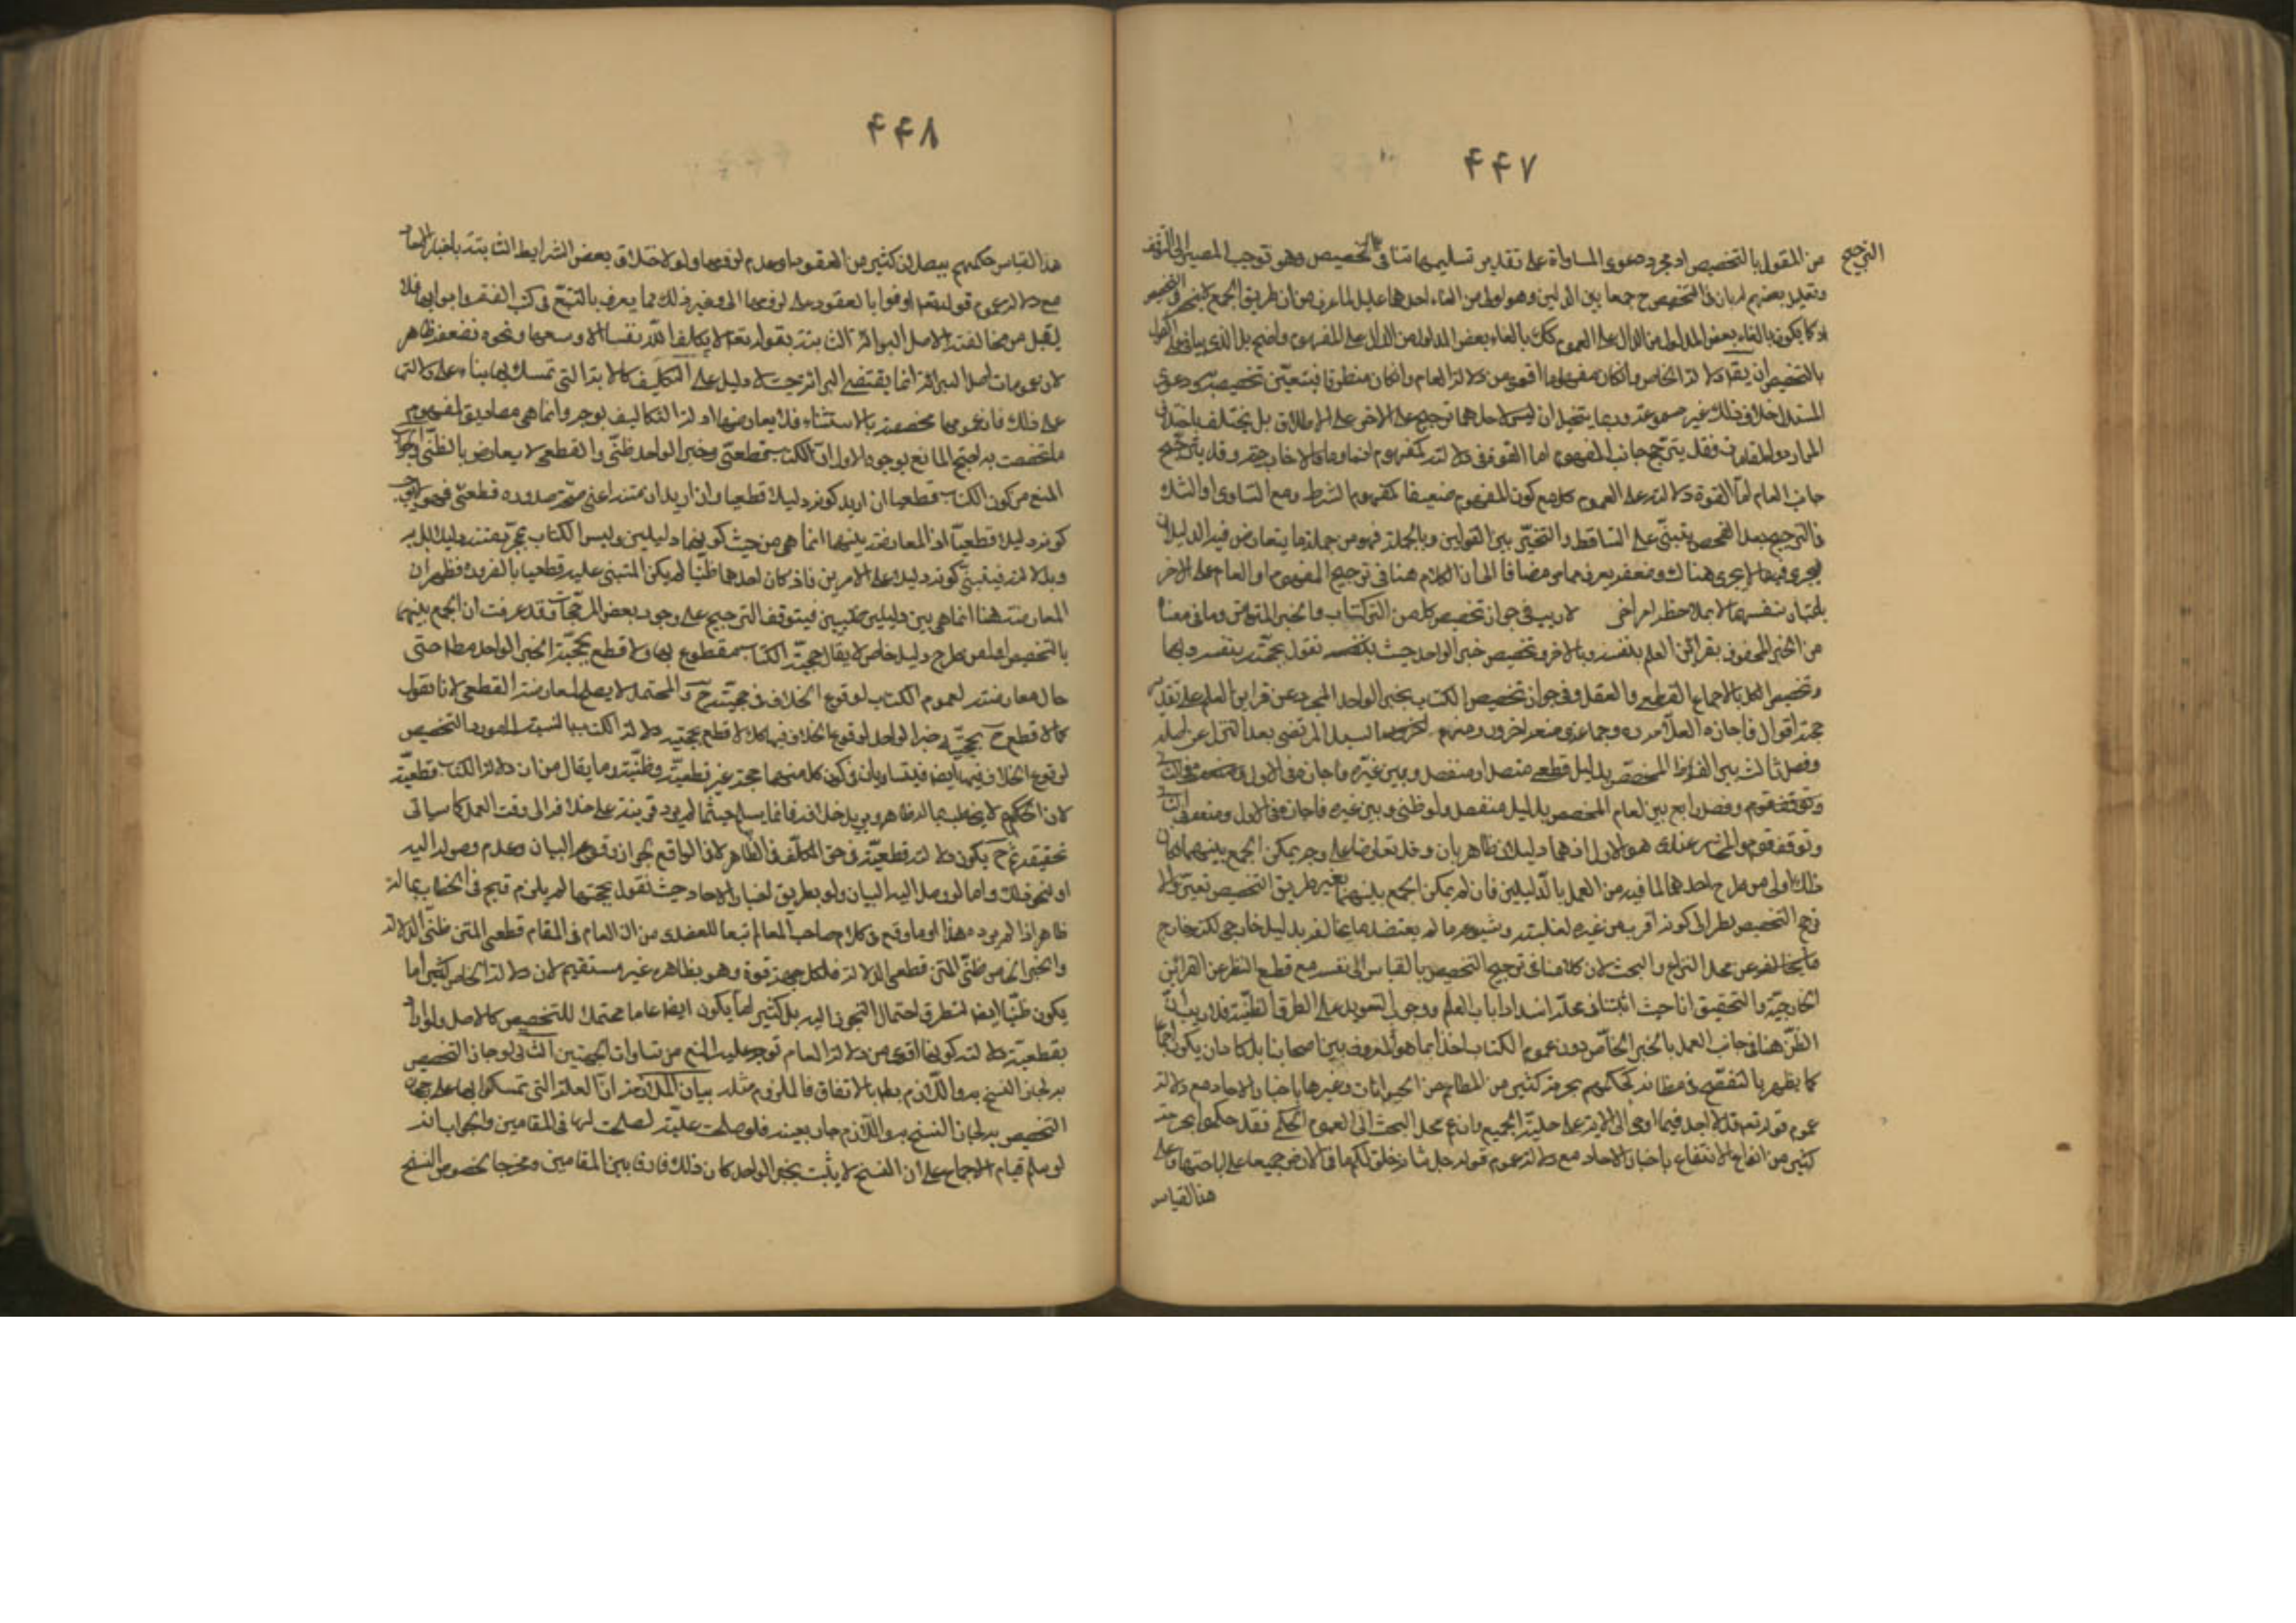 ۴۴۷
الترجيح
من القول بالتخصيص اذ مجرد دعوى المساواة على تقدير تسليمها تنافي التخصيص وهو توجب المصير الى التوقف
وتعليل بعضهم بان في التخصيص ح جمعا بين الدليلين وهو اولى من الغاء احدهما عليل لما عرفت من ان طريق الجمع لا ينحصر في التخصيص
اذ كما يكون بالغاء بعض المدلول من الدال على العموم كك بالغاء بعض المدلول من الدال على المفهوم واضح بل الذي
بالتخصيص ان يقال دلالة الخاص وان كان مفهوما اقوى من دلالة العام وان كان منطوقا فيتعين تخصيصه به ودعوى
المستدل خلاف ذلك غير مسموعة وربما يتخيل ان ليس لاحدهما ترجيح على الاخر على الاطلاق بل يختلف باختلاف
الموارد والمقامات فقد يترجح جانب المفهوم اما لقوة في دلالته كمفهوم انما وما والا او لاخبار وقد يترجح
جانب العام اما لقوة دلالته على العموم كما مع كون المفهوم ضعيفا كمفهوم الشرط ومع التساوي او الشك
فالترجيح بعد الفحص يبتني على التساقط والتخيير بين القولين وبالجملة فهو من جملة ما يتعارض فيه الدليلان
فيجري فيها ما يجري هناك وضعفه يعرف مما مر مضافا الى ان الكلام هنا في ترجيح المفهوم او العام على الاخر
باعتبار نفسهما لا بملاحظة امر اخر لا ريب في جواز تخصيص كل من الكتاب والخبر المتواتر وما في معناه
من الخبر المحفوف بقرائن العلم بنفسه وبالاخر وتخصيص خبر الواحد حيث نقول بحجيته بنفسه وبهما
وتخصيص الكل بالاجماع القطعي والعقل وفي جواز تخصيص الكتاب بخبر الواحد المجرد عن قراين العلم على تقدير
حجيته اقوال فاجازه العلامة ره وجماعة ومنعه اخرون ومنهم السيد المرتضى بعد التنزل عن اصله
وفصل ثالث بين العام المخصص بدليل قطعي متصل او منفصل وبين غيره فاجازه في الاول ومنعه في الثاني
وتوقف قوم وفصل رابع بين العام المخصص بدليل منفصل ولو ظني وبين غيره فاجازه في الاول ومنعه في الثاني
وتوقف قوم والمختار عندي هو الاول لانهما دليلان ظاهريان وقد تعارضا على وجه يمكن الجمع بينهما فان
ذلك اولى من طرح احدهما لما فيه من العمل بالدليلين فان لم يمكن الجمع بينهما بغير طريق التخصيص تعين والا
رجح التخصيص نظرا الى كونه اقرب من غيره لغلبته وشيوعه ما لم يعتضد ما يخالفه بدليل خارجي لكنه خارج
عن محل النزاع والبحث لان كلامنا في ترجيح التخصيص بالقياس الى نفسه مع قطع النظر عن القرائن
الخارجية والتحقيق انا حيث اثبتنا في محله انسداد باب العلم ووجوب التعويل على الطرق الظنية فلا ريب ان
الظن هنا في جانب العمل بالخبر الخاص دون عموم الكتاب اخذا بما هو المعروف بين اصحابنا بل كاد ان يكون اجماعا
كما يظهر بالتفحص في مظانه كحكمهم بحرمة كثير من المطاعم من الحيوانات وغيرها باخبار الاحاد مع دلالة
عموم قوله تعم قل لا اجد فيما اوحي الي الاية على حلية الجميع وان محل البحث الى العموم الحكمي فقد حكموا بحرمة
كثير من انحاء الانتفاع باخبار الاحاد مع دلالة عموم قوله جل شانه خلق لكم ما في الارض جميعا على اباحتها وعلى
هذا القياس
۴۴۸
هذا القياس حكمهم ببطلان كثير من العقود وعدم لزومها ولو لاختلاف بعض الشرايط الثابتة باخبار الاحاد
مع دلالة عموم قوله تعم اوفوا بالعقود على لزومها الى غير ذلك مما يعرف بالتتبع في كتب الفقه وابوابها فلا
يقبل من مخالفته لاصل البرائة الثابتة بقوله تعم لا يكلف الله نفسا الا وسعها ونحوه فضعفه ظاهر
لان عمومات اصل البرائة انما يقتضي البرائة حيث لا دليل على التكليف كالاية التي تمسك بها بناء على دلالتها
على ذلك فان عمومها مخصصة بالاستثناء فلا يعارضها ادلة التكاليف بوجه وانما هي مصاديق لمفهوم
ما خصصت به احتج المانع بوجوه الاول ان الكتاب قطعي وخبر الواحد ظني والقطعي لا يعارض بالظني والجواب
المنع من كون الكتاب قطعيا ان اريد كونه دليلا قطعيا وان اريد ان متنه اعني صدوره قطعي فهو لا يوجب
كونه دليلا قطعيا اذ المعارضة بينهما انما هي من حيث كونهما دليلين وليس الكتاب بمجرد متنه دليلا بل به
وبدلالته فيبتني كونه دليلا على الامرين فاذ كان احدهما ظنيا لم يكن المبتني عليه قطعيا بالضرورة فظهر ان
المعارضة هنا انما هي بين دليلين ظنيين فيتوقف الترجيح على وجود بعض المرجحات وقد عرفت ان الجمع بينهما
بالتخصيص اولى من طرح دليل خاص لا يقال حجية الكتاب مقطوع بها ولا قطع بحجية الخبر الواحد مطلقا حتى
حال معارضته لعموم الكتاب لوقوع الخلاف في حجيته ح والمحتمل لا يصلح لمعارضة القطعي لانا نقول
كما لا قطع ح بحجية خبر الواحد لوقوع الخلاف فيها كك لا قطع بحجية دلالة الكتاب بالنسبة الى مورد التخصيص
لوقوع الخلاف فيها ايضا فيتساويان في كون كل منهما حجة غير قطعية وظنية وما يقال من ان دلالة الكتاب قطعية
لان الحكيم لا يخاطب بما له ظاهر ويريد خلافه فانما يسلم حيثما لم يورد قرينة على خلافه الى وقت العمل كما سياتي
تحقيقه نعم ح يكون دلالته قطعية في حق المكلف في الظاهر لا في الواقع لجواز وقوع البيان وعدم وصوله اليه
او لنحو ذلك واما لو وصل اليه البيان ولو بطريق اخبار الاحاد حيث نقول بحجيتها لم يلزم قبح في الخطاب بما له
ظاهر اذا لم يرده هذا وما وقع في كلام صاحب المعالم تبعا للعضدي من ان العام في المقام قطعي المتن ظني الدلالة
والخبر الخاص ظني المتن قطعي الدلالة فلكل جهة قوة وهو بظاهره غير مستقيم لان دلالة الخاص كثيرا ما
يكون ظنيا ايضا لتطرق احتمال التجوز اليه بل كثيرا ما يكون ايضا عاما محتملا للتخصيص كالاصل ولو اراد
بقطعية دلالته كونها اقوى من دلالة العام توجه عليه المنع من تساوي الجهتين الثاني لو جاز التخصيص
به لجاز النسخ به واللازم بط بالاتفاق فالملزوم مثله بيان الملازمة ان العلة التي تمسكوا بها على جواز
التخصيص به لجاز النسخ به واللازم جار بعينه فلو صلحت علية لصلحت لها في المقامين والجواب انه
لو سلم قيام الاجماع على ان النسخ لا يثبت بخبر الواحد كان ذلك فارقا بين المقامين ومخرجا لخصوص النسخ